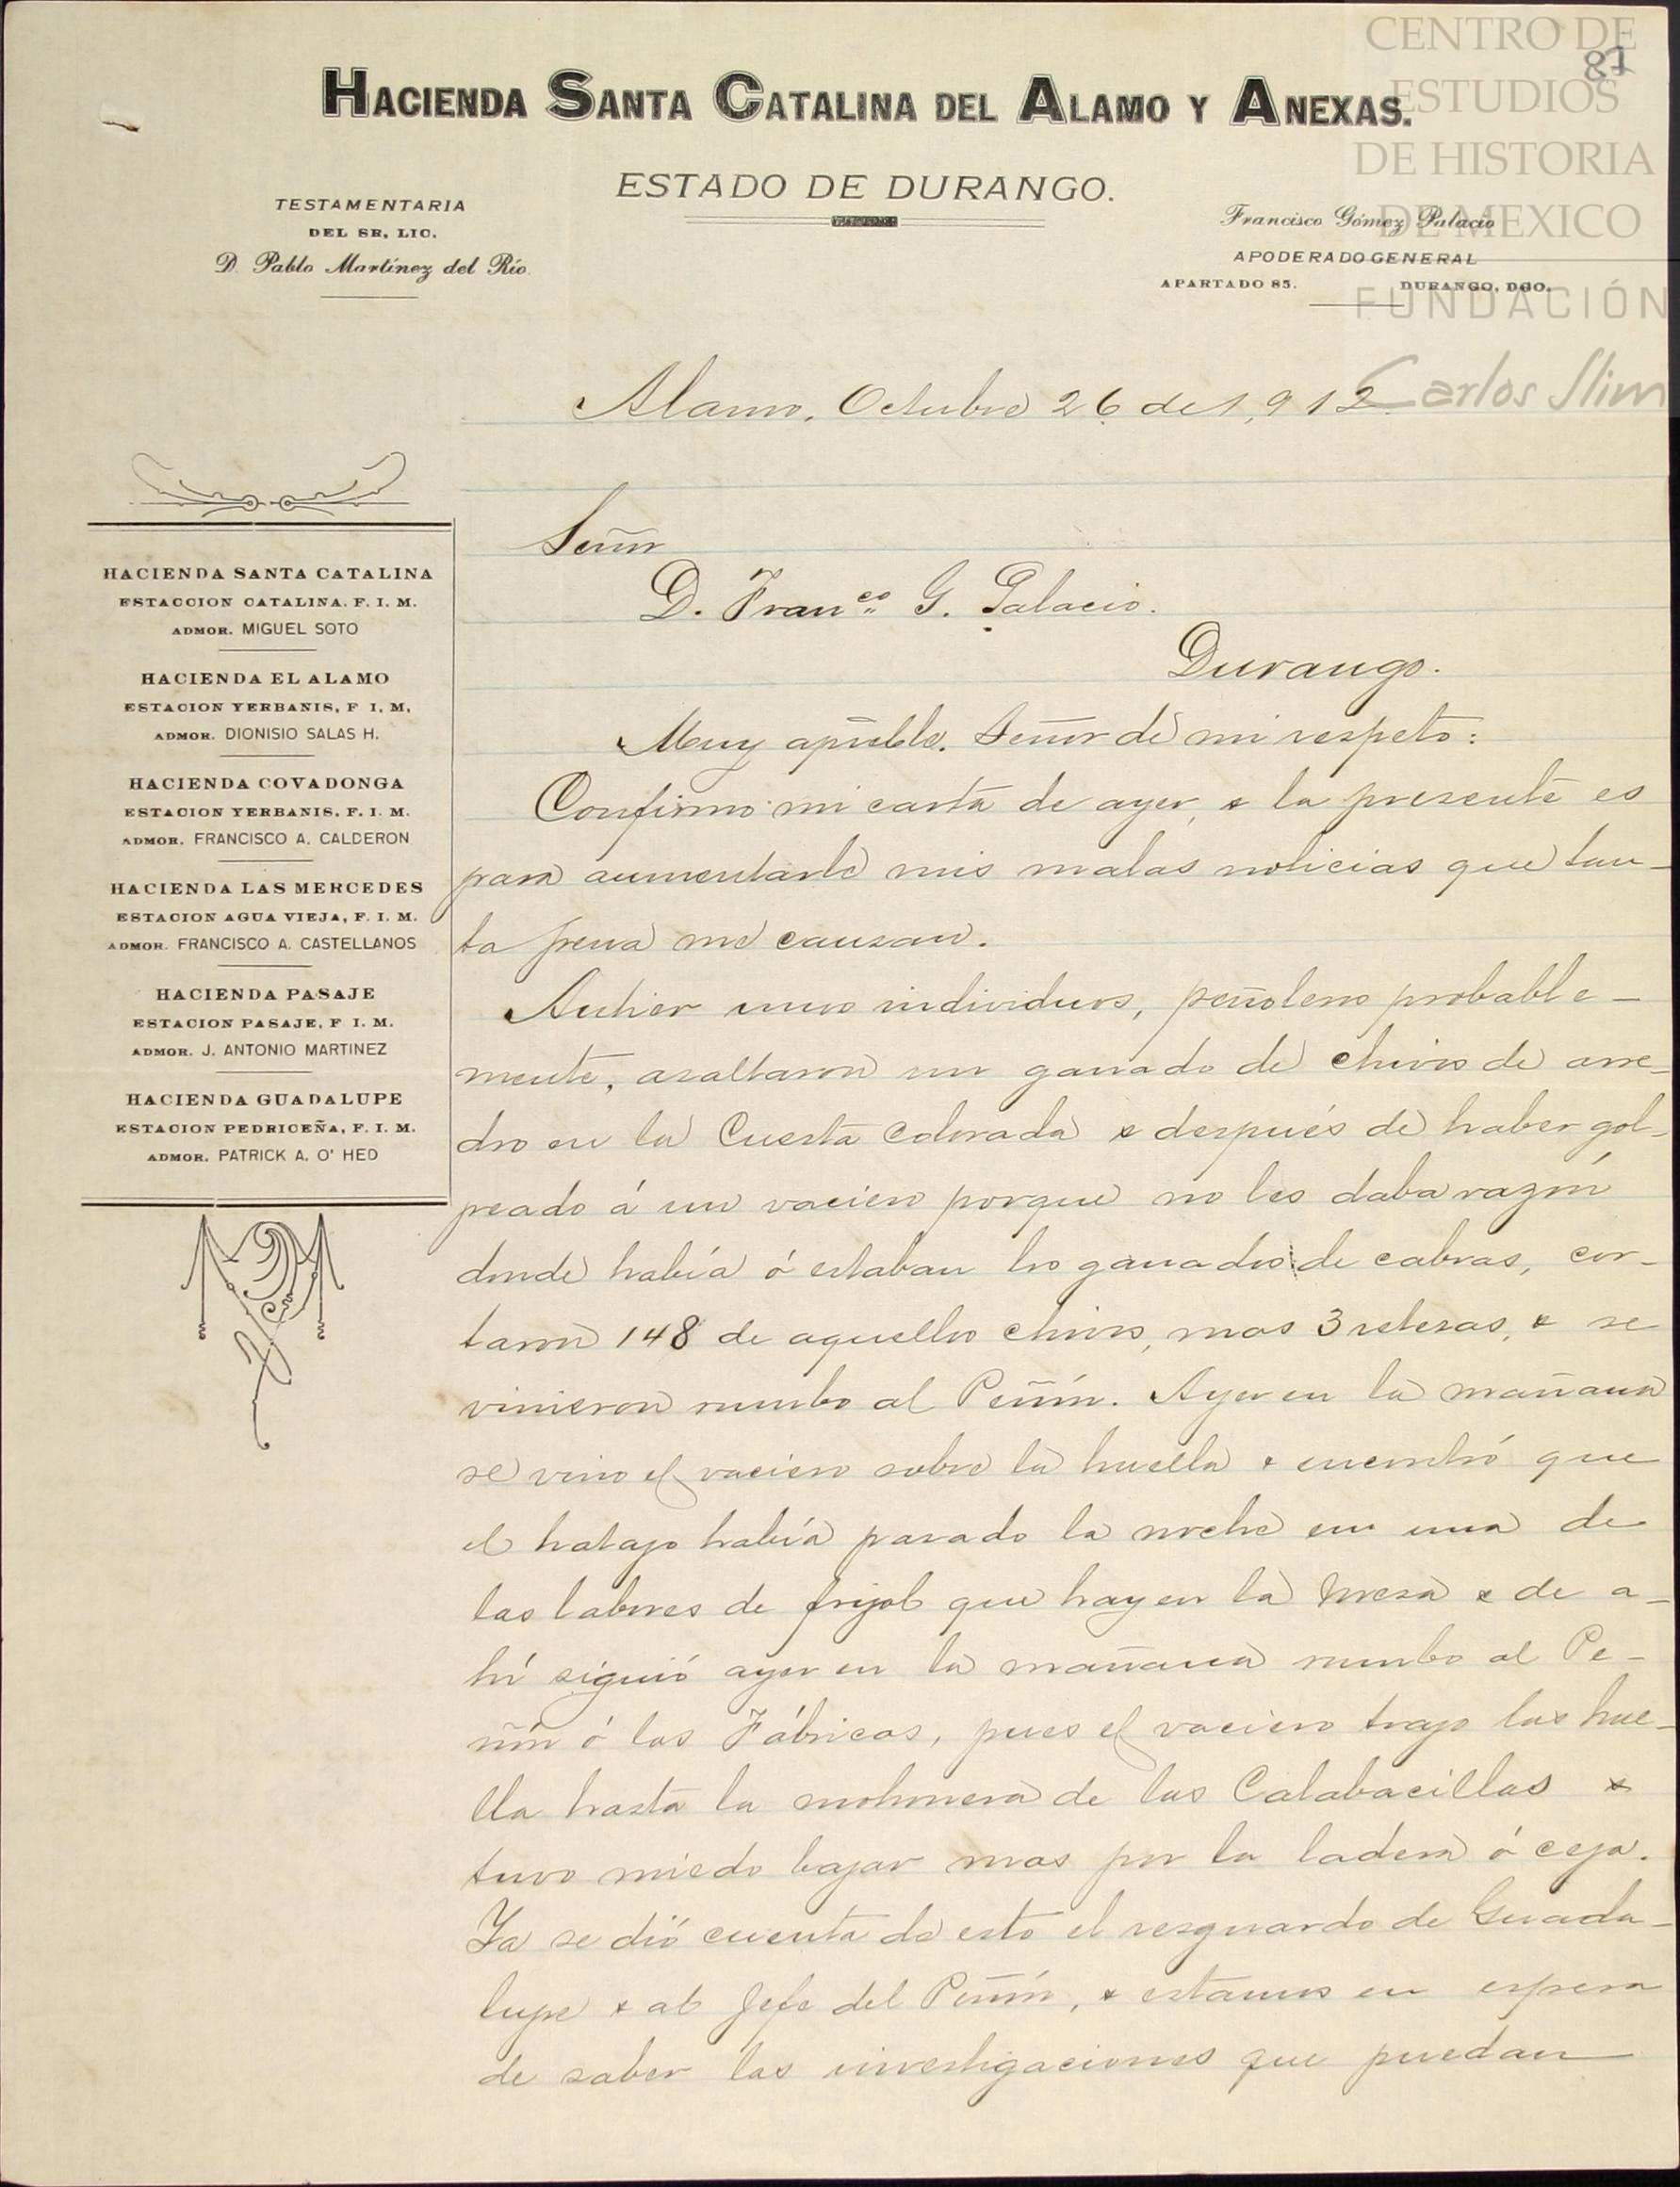 CENTRO DE
ESTUDIOS
DE HISTORIA
DE MEXICO
FUNDACIÓN
Carlos Slim
87
HACIENDA SANTA CATALINA DEL ALAMO Y ANEXAS.
ESTADO DE DURANGO.
TESTAMENTARIA
DEL SR. LIC.
D. Pablo Martínez del Río.
Francisco Gómez Palacio
APODERADO GENERAL
APARTADO 85. DURANGO, DGO.
Alamo, Octubre 26 de 1,912.
HACIENDA SANTA CATALINA
ESTACCION CATALINA. F. I. M.
ADMOR. MIGUEL SOTO
HACIENDA EL ALAMO
ESTACION YERBANIS, F I. M.
ADMOR. DIONISIO SALAS H.
HACIENDA COVADONGA
ESTACION YERBANIS. F. I. M.
ADMOR. FRANCISCO A. CALDERON
HACIENDA LAS MERCEDES
ESTACION AGUA VIEJA, F. I. M.
ADMOR. FRANCISCO A. CASTELLANOS
HACIENDA PASAJE
ESTACION PASAJE, F I. M.
ADMOR. J. ANTONIO MARTINEZ
HACIENDA GUADALUPE
ESTACION PEDRICEÑA, F. I. M.
ADMOR. PATRICK A. O' HED
Señor
D. Franco. G. Palacio.
Durango.
Muy apreble. Señor de mi respeto:
Confirmo mi carta de ayer, & la presente es
para aumentarle mis malas noticias que tan-
ta pena me causan.
Antier unos individuos, peñoleno probable-
mente, asaltaron un ganado de chivos de arre-
dro en la Cuesta Colorada & después de haber gol-
peado á un vaciero porque no les daba razón
donde había ó estaban los ganados de cabras, cor-
taron 148 de aquellos chivos, mas 3 reteras, & se
vinieron rumbo al Peñón. Ayer en la mañana
se vino el vaciero sobre la huella & encontró que
el hatajo había pasado la noche en una de
las labores de frijol que hay en la Mesa & de a-
hí siguió ayer en la mañana rumbo al Pe-
ñón ó las Fábricas, pues el vaciero trajo las hue-
lla hasta la mohonera de las Calabacillas &
tuvo miedo bajar mas por la ladera ó ceja.
Ya se dió cuenta de esto el resguardo de Guada-
lupe & al Jefe del Peñón, & estamos en espera
de saber las investigaciones que puedan